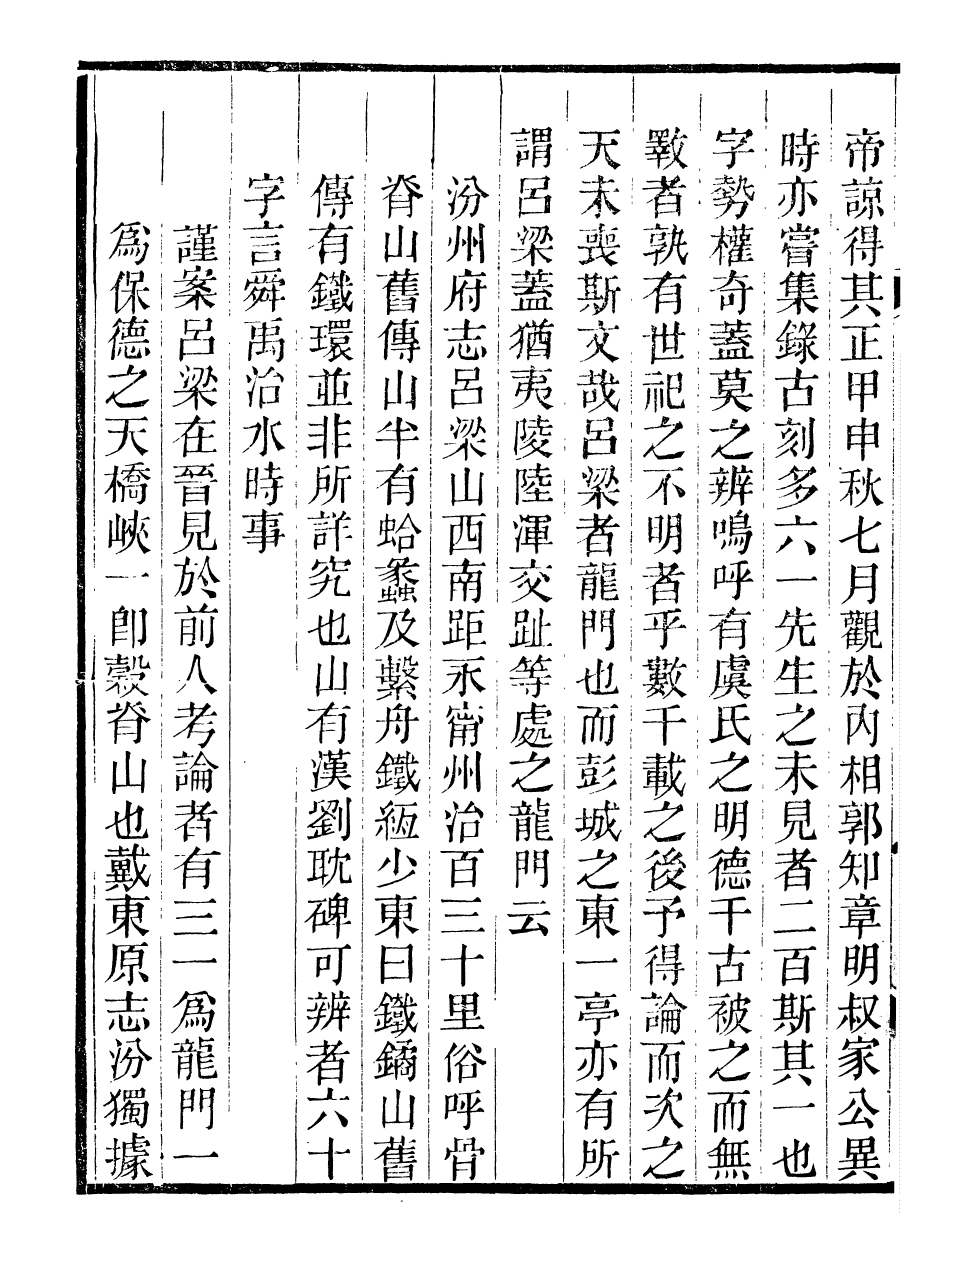 帝諒得其正甲申秋七月觀於內相郭知章明叔家公異
時亦嘗集錄古刻多六一先生之未見者二百斯其一也
字勢權奇蓋莫之辨鳴呼有虞氏之明德千古被之而無
斁者孰有世祀之不明者乎數千載之後予得論而次之
天未喪斯文哉呂梁者龍門也而彭城之東一亭亦有所
謂呂梁蓋猶夷陵陸渾交趾等處之龍門云
汾州府志呂梁山西南距永甯州治百三十里俗呼骨
脊山舊傳山半有蛤蠡及繫舟鐵絙少東曰鐵鏋山舊
傳有鐵環並非所詳究也山有漢劉耽碑可辨者六十
字言舜禹治水時事
謹案呂梁在晉見於前人考論者有三一爲龍門一
爲保德之天橋峽一卽穀脊山也戴東原志汾獨據